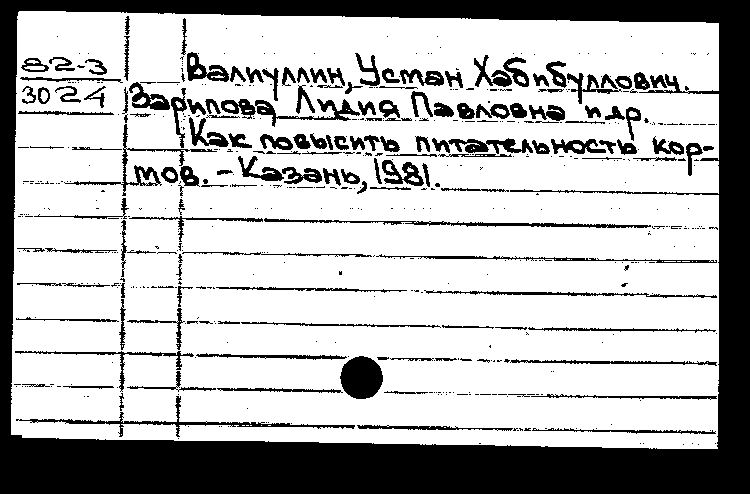 82-3
3024
Валиуллин, Усман Хабибуллович.
Зарипова Лидия Павловна и др.
Как повысить питательность кор-
мов. - Казань, 1981.